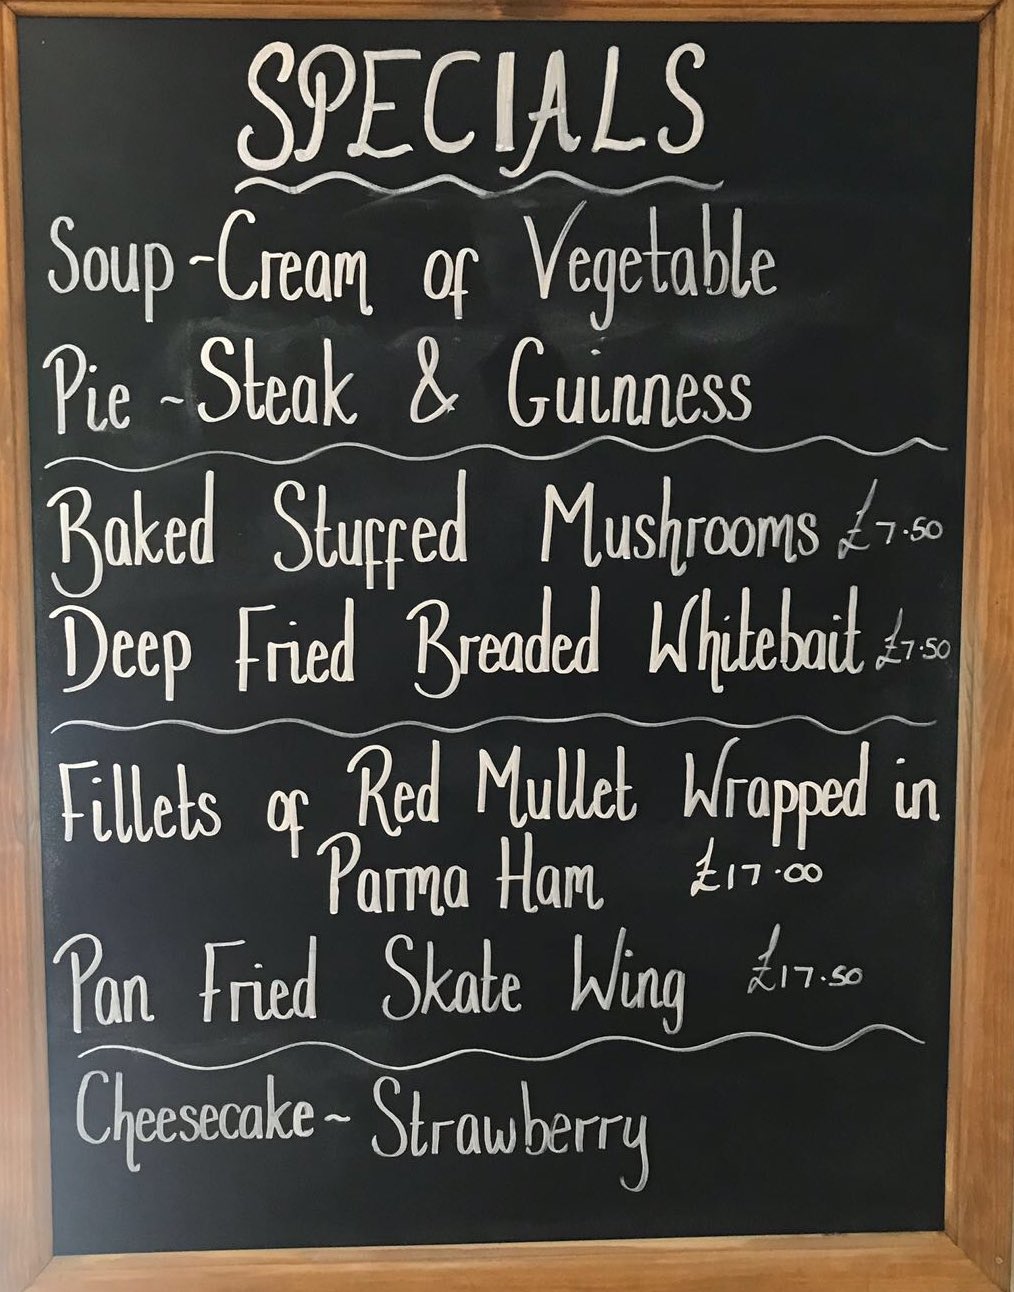 SPECIALS
Soup - Cream of Vegetable
Pie ~ Steak & Guinness
Baked Stuffed Mushrooms £7.50
Deep Fried Breaded Whitebait £7.50
Fillets of Red Mullet Wrapped in
Parma Ham £17.00
Pan Fried Skate Wing £17.50
Cheesecake ~ Strawberry